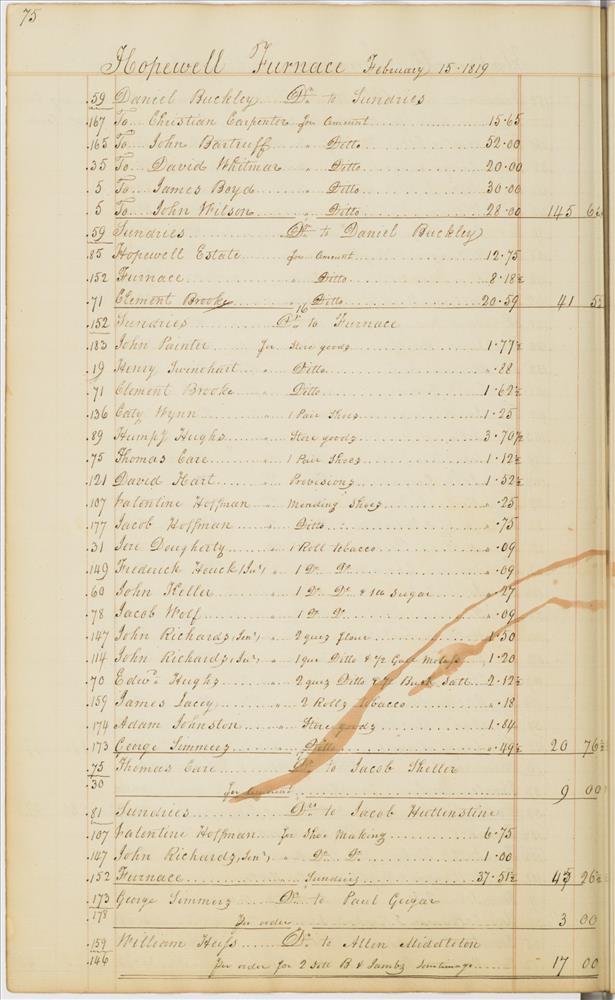 75
Hopewell Furnace February 15 · 1819
59 Daniel Buckley Dr. to Sundries
167 To Christian Carpenter for Amount 15.65
165 To John Bartruff " Ditto 52.00
35 To David Whitmar " Ditto 20.00
5 To James Boyd " Ditto 30.00
5 To John Wilson " Ditto 28.00 145 65
59 Sundries Drs. to Daniel Buckley
85 Hopewell Estate for Amount 12.75
152 Furnace " Ditto 8.18½
71 Clement Brooke " Ditto 20.59 41 5
16
152 Sundries Drs. to Furnace
183 John Painter for Store goods 1.77½
19 Henry Swinehart " Ditto ".28
71 Clement Brooke " Ditto 1.62½
136 Caty Wynn " 1 Pair Shoes 1.25
89 Humpy Hughs " Store goods 3.70½
75 Thomas Care " 1 Pair Shoes 1.12½
121 David Hart " Provisions 1.52½
107 Valentine Hoffman " Mending Shoes ".25
177 Jacob Hoffman " Ditto ".75
31 Jere Dougherty " 1 Roll tobacco ".09
149 Frederick Hauck (Junr) " 1 Do. Do. ".09
60 John Keller " 1 Do. Do. & 1 lb Sugar ".27
78 Jacob Wolf " 1 Do. Do. ".09
147 John Richards, Senr, " 2 qurs flour 1.50
114 John Richards, Junr, " 1 qur Ditto & ½ Gall Molass 1.20
70 Edwd. Hughs " 2 qurs Ditto & ½ Bush Salt 2.12½
159 James Lacey " 2 Rolls tobacco ".18
174 Adam Johnston " Store goods 1.84
173 George Simmers " Ditto ".49½ 20 76½
75 Thomas Care Dr. to Jacob Keller
30
for 9 00
81 Sundries Drs. to Jacob Huttenstine
107 Valentine Hoffman for Shoe Making 6.75
147 John Richards, Senr, " Do. Do. 1.00
152 Furnace " Sundries 37.51½ 45 26½
173 George Simmers Dr. to Paul Geiger
178
for order 3 00
159 William Heifs Dr. to Allen Middleton
146
for order for 2 B & Jambs 17 00